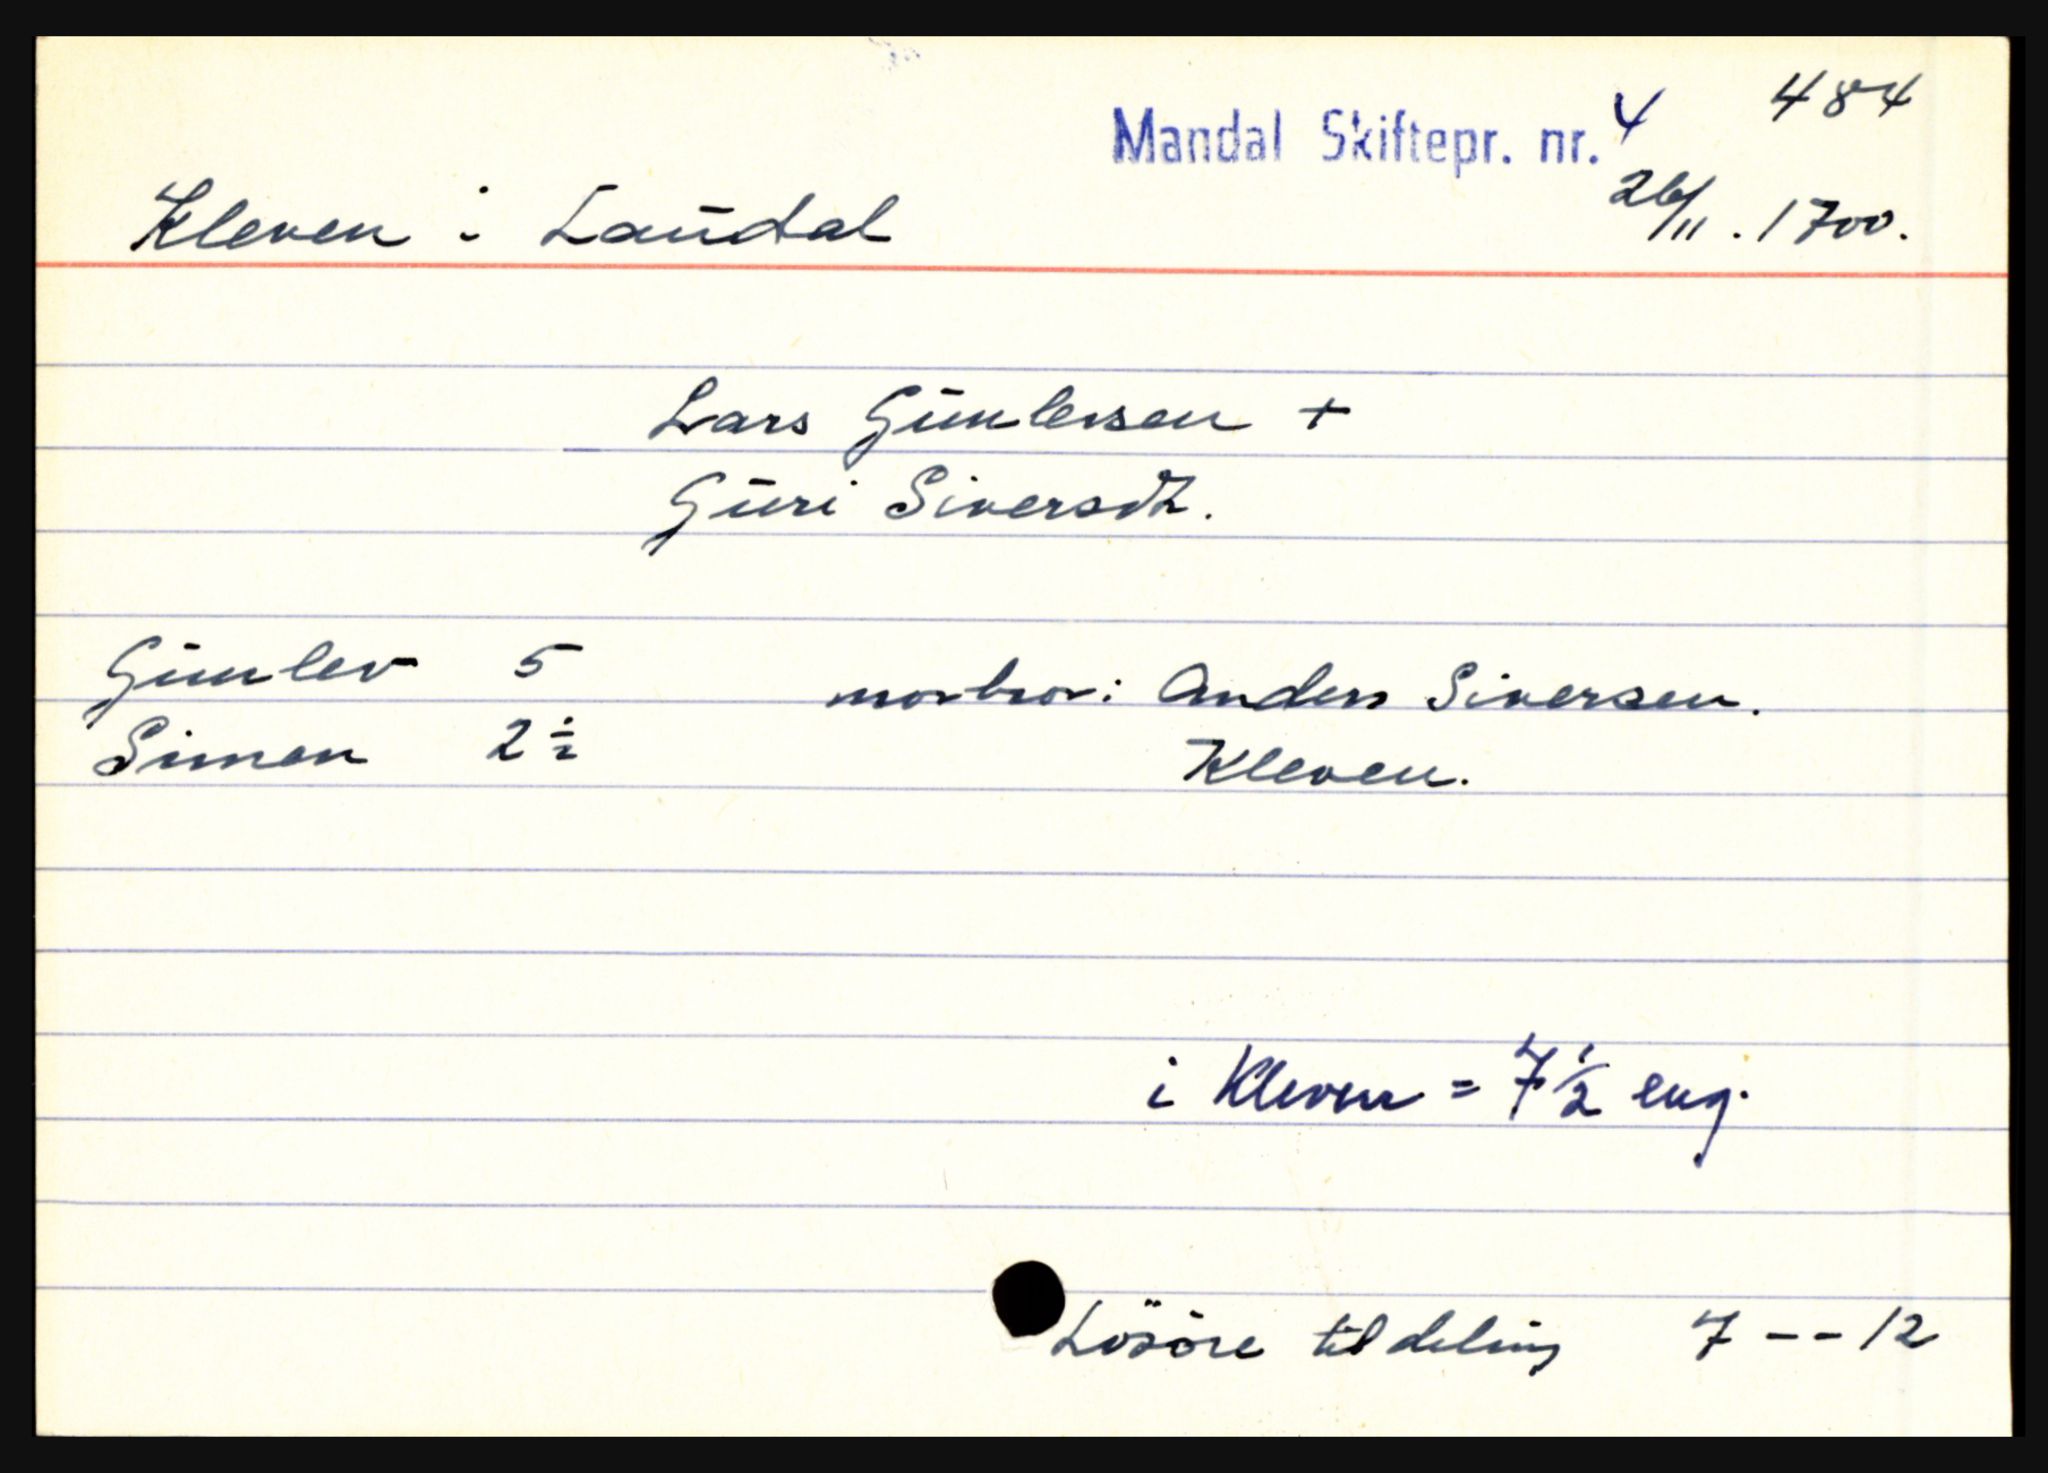 Mandal Skiftepr. nr. 4 484
Kleven i Laudal 26/11. 1700.
Lars Gunlersen +
Guri Siversdt.
Gunlev 5 morbror: Anders Siversen.
Simen 2 1/2 Kleven.
i Kleven = 7 1/2 eng.
Lösöre til deling 7 -- 12